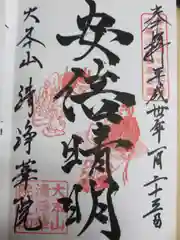 奉拝 平成丗年一月二十三日
安倍晴明
大本山 清浄華院